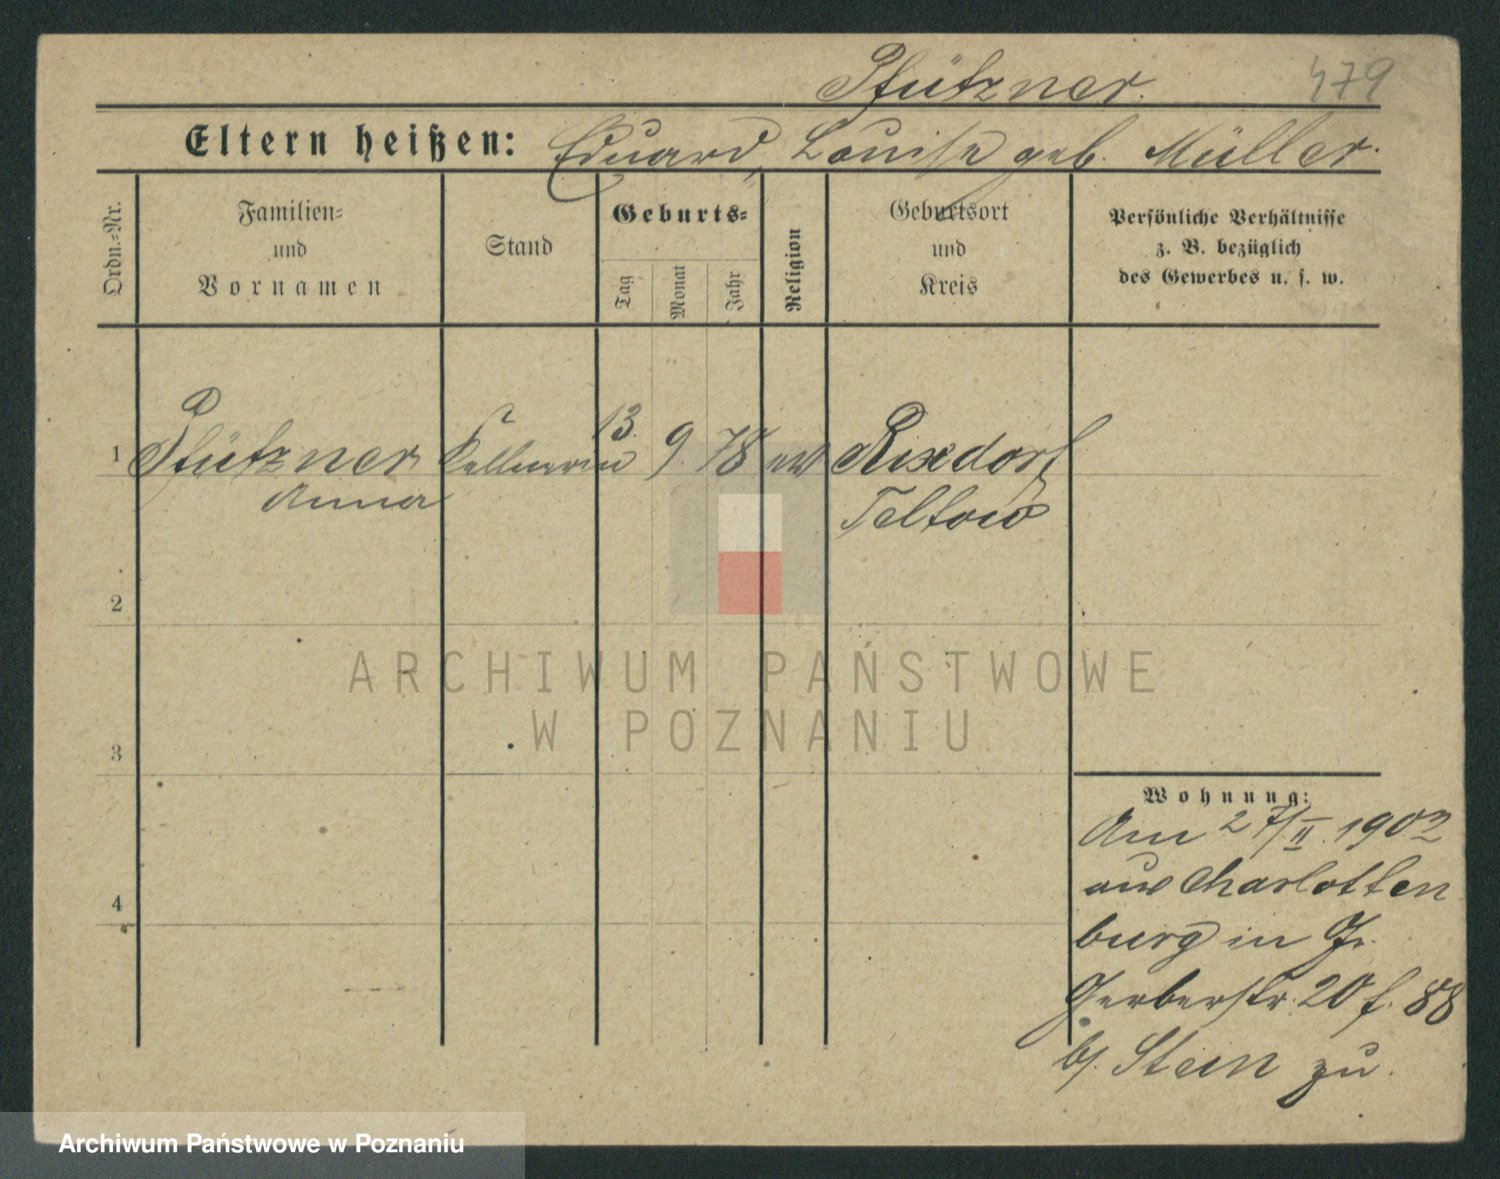 Pfützner. 479
Eltern heißen: Eduard, Louise geb. Müller.
Ordn.-Nr.
Familien-
und
Vornamen
Stand
Geburts-
Tag
Monat
Jahr
Religion
Geburtsort
und
Kreis
Persönliche Verhältnisse
z. B. bezüglich
des Gewerbes u. s. w.
1 Pfützner Kellnerin 13. 9. 78 ev Rixdorf
Anna Teltow
2
ARCHIWUM PAŃSTWOWE
W POZNANIU
3
Wohnung:
Am 27/II. 1902
aus Charlotten
4
burg in Gr.
Gerberstr. 20 f. 88
b/. Stein zu.
Archiwum Państwowe w Poznaniu